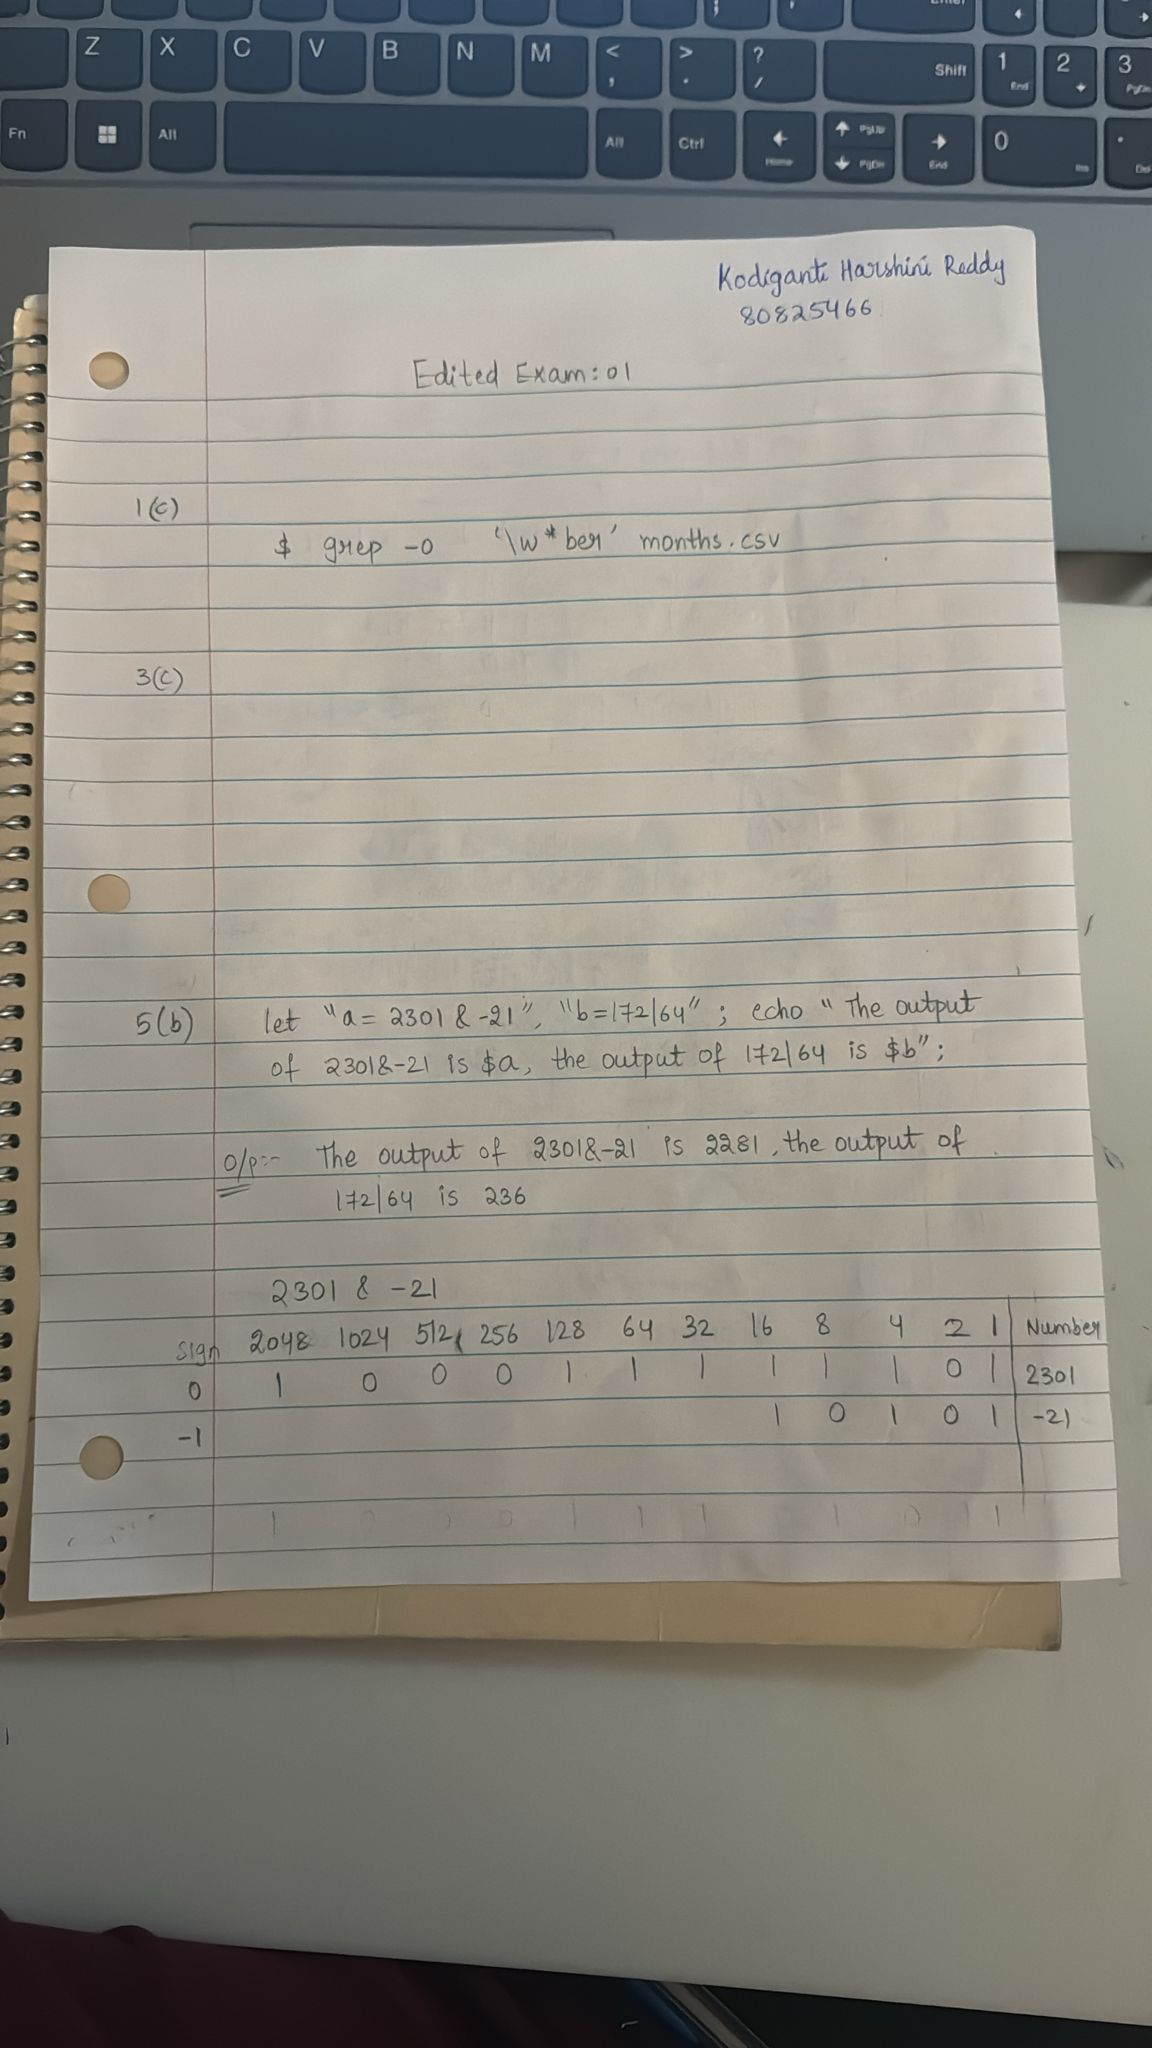 Enter
Z X C V B N M < , > . ? / Shift 1 End 2 3 PgDn
Fn Alt Alt Ctrl Home PgUp PgDn End 0 Ins . Del
Kodiganti Harshini Reddy
80825466
Edited Exam:01
1(c)
$ grep -o '\w*ber' months.csv
3(c)
5(b) let "a= 2301 & -21", "b=172|64" ; echo "The output
of 2301&-21 is $a, the output of 172|64 is $b";
O/p:- The output of 2301&-21 is 2281, the output of
172|64 is 236
2301 & -21
Sign 2048 1024 512 256 128 64 32 16 8 4 2 1 Number
0 1 0 0 0 1 1 1 1 1 1 0 1 2301
-1 1 0 1 0 1 -21